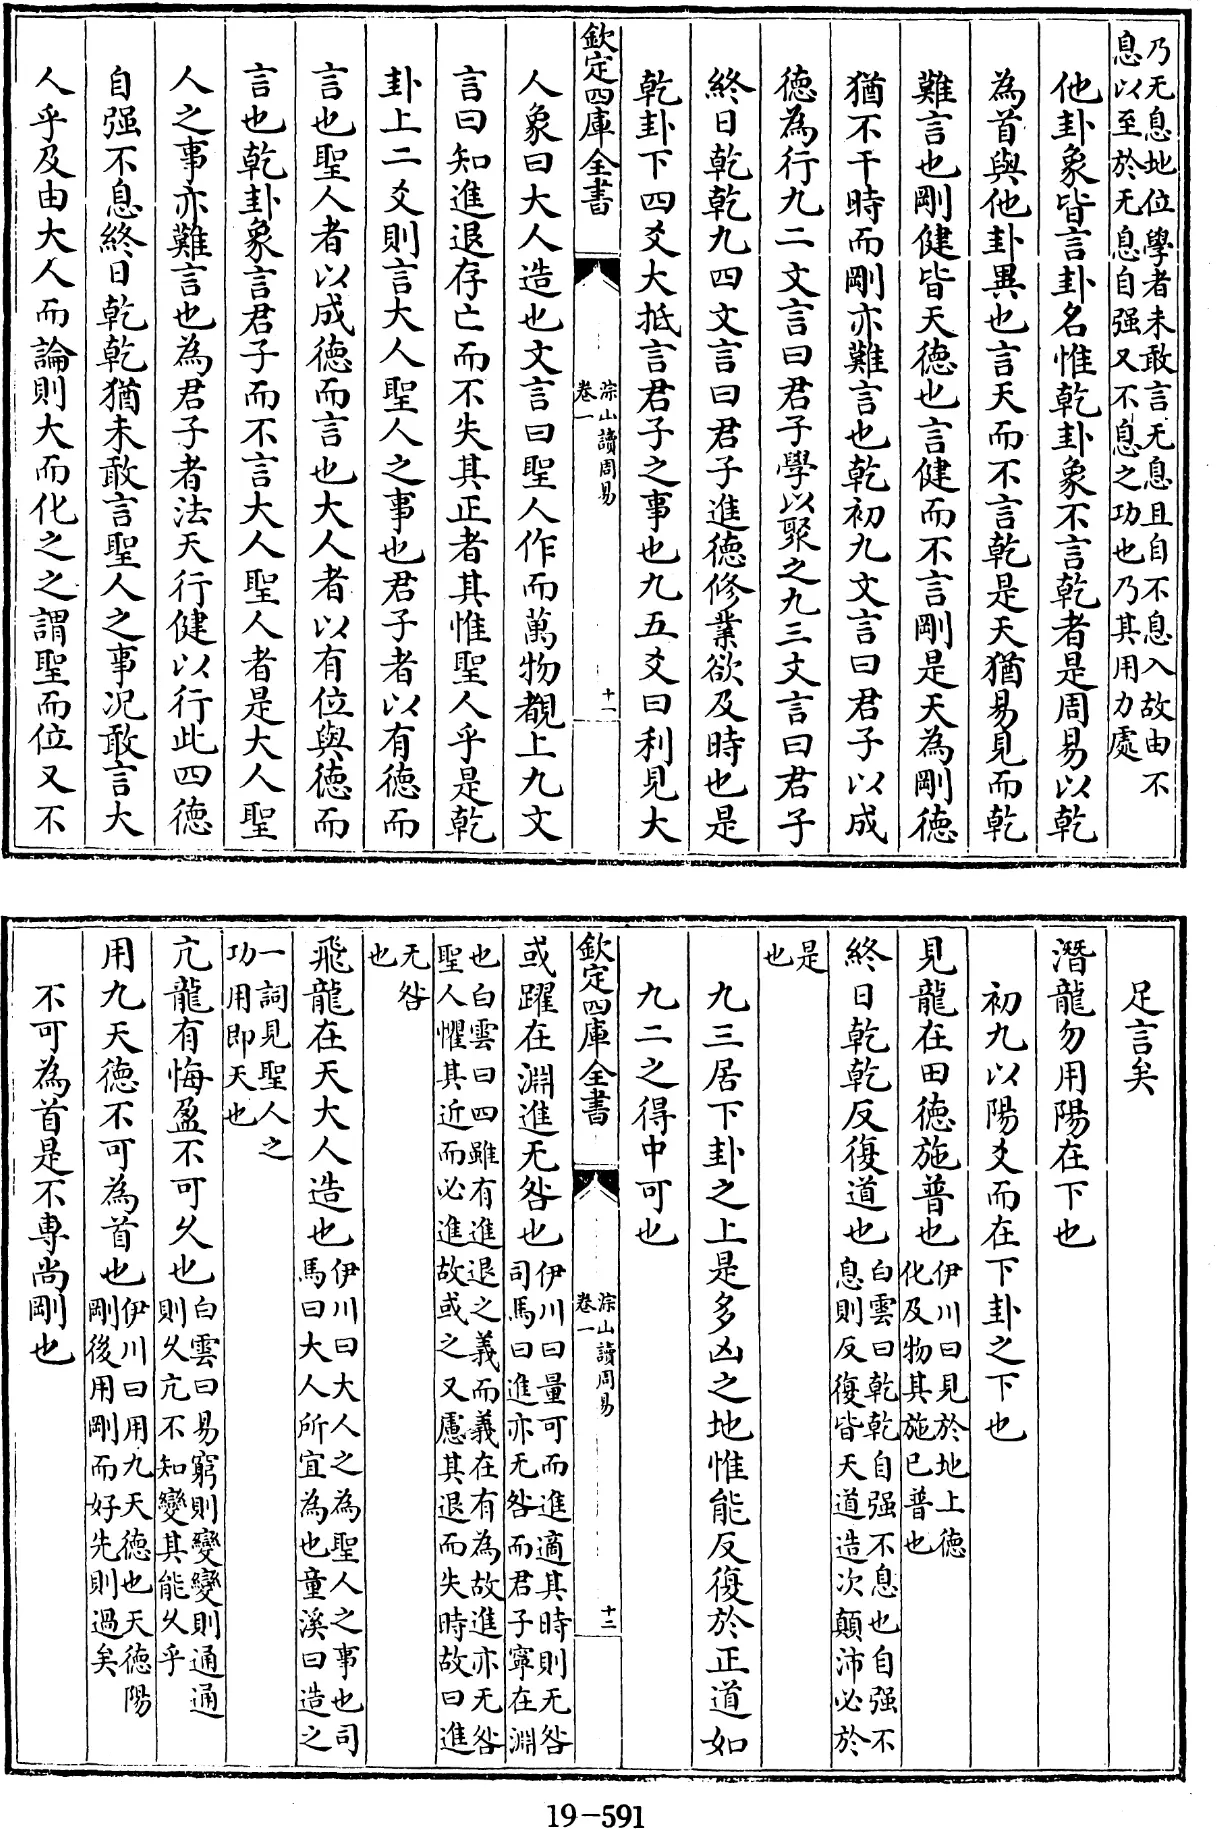 乃无息地位學者未敢言无息且自不息入故由不
息以至於无息自强又不息之功也乃其用力處
他卦象皆言卦名惟乾卦象不言乾者是周易以乾
為首與他卦異也言天而不言乾是天猶易見而乾
難言也剛健皆天徳也言健而不言剛是天為剛徳
猶不干時而剛亦難言也乾初九文言曰君子以成
徳為行九二文言曰君子學以聚之九三文言曰君子
終日乾乾九四文言曰君子進徳修業欲及時也是
乾卦下四爻大抵言君子之事也九五爻曰利見大
欽定四庫全書
淙山讀周易
卷一
十一
人象曰大人造也文言曰聖人作而萬物覩上九文
言曰知進退存亡而不失其正者其惟聖人乎是乾
卦上二爻則言大人聖人之事也君子者以有徳而
言也聖人者以成徳而言也大人者以有位與徳而
言也乾卦象言君子而不言大人聖人者是大人聖
人之事亦難言也為君子者法天行健以行此四徳
自强不息終日乾乾猶未敢言聖人之事况敢言大
人乎及由大人而論則大而化之之謂聖而位又不
足言矣
潛龍勿用陽在下也
初九以陽爻而在下卦之下也
見龍在田徳施普也
伊川曰見於地上徳
化及物其施已普也
終日乾乾反復道也
白雲曰乾乾自强不息也自强不
息則反復皆天道造次顛沛必於
是
也
九三居下卦之上是多凶之地惟能反復於正道如
九二之得中可也
欽定四庫全書
淙山讀周易
卷一
十二
或躍在淵進无咎也
伊川曰量可而進適其時則无咎
司馬曰進亦无咎而君子寧在淵
也白雲曰四雖有進退之義而義在有為故進亦无咎
聖人懼其近而必進故或之又慮其退而失時故曰進
无咎
也
飛龍在天大人造也
伊川曰大人之為聖人之事也司
馬曰大人所宜為也童溪曰造之
一詞見聖人之
功用即天也
亢龍有悔盈不可久也
白雲曰易窮則變變則通通
則久亢不知變其能久乎
用九天徳不可為首也
伊川曰用九天徳也天徳陽
剛後用剛而好先則過矣
不可為首是不専尚剛也
19-591